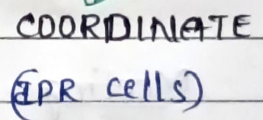 COORDINATE
(IPR cells)